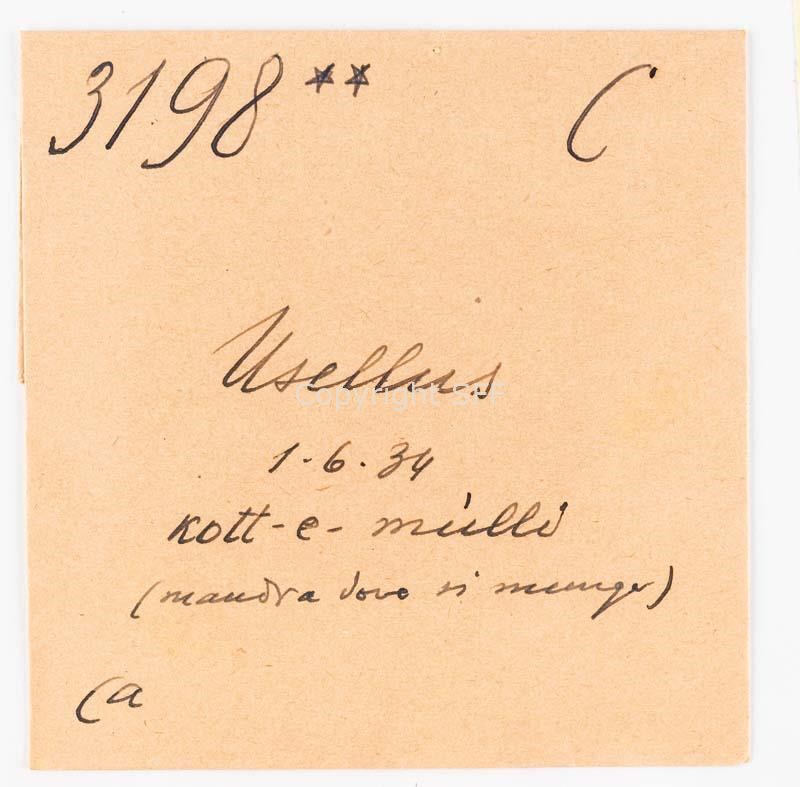 3198** C
Usellus
Copyright SFF
1-6.34
kott-e-mulli
(mandra dove si munge)
Ca